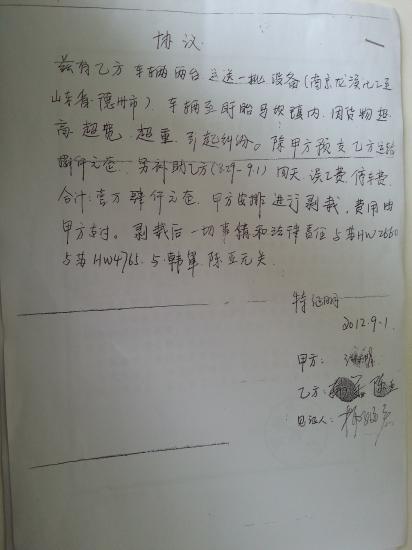 协议
兹有乙方车辆两台运送一批设备(南京龙溪化工至
山东省德州市)车辆至盱眙马坝镇内,因货物超
高、超宽、超重,引起纠纷。除甲方预支乙方运输
仟元态,另补助乙方(8.29-9.1)四天,误工费,停车费,
合计:壹万肆仟元态,甲方安排进行剥载,费用由
甲方支付。剥载后一切事情和法律责任与苏HW2660
与苏HW4765.与.韩军 陈亚元关.
特证明
2012.9.1.
甲方:
乙方: 陈
见证人: